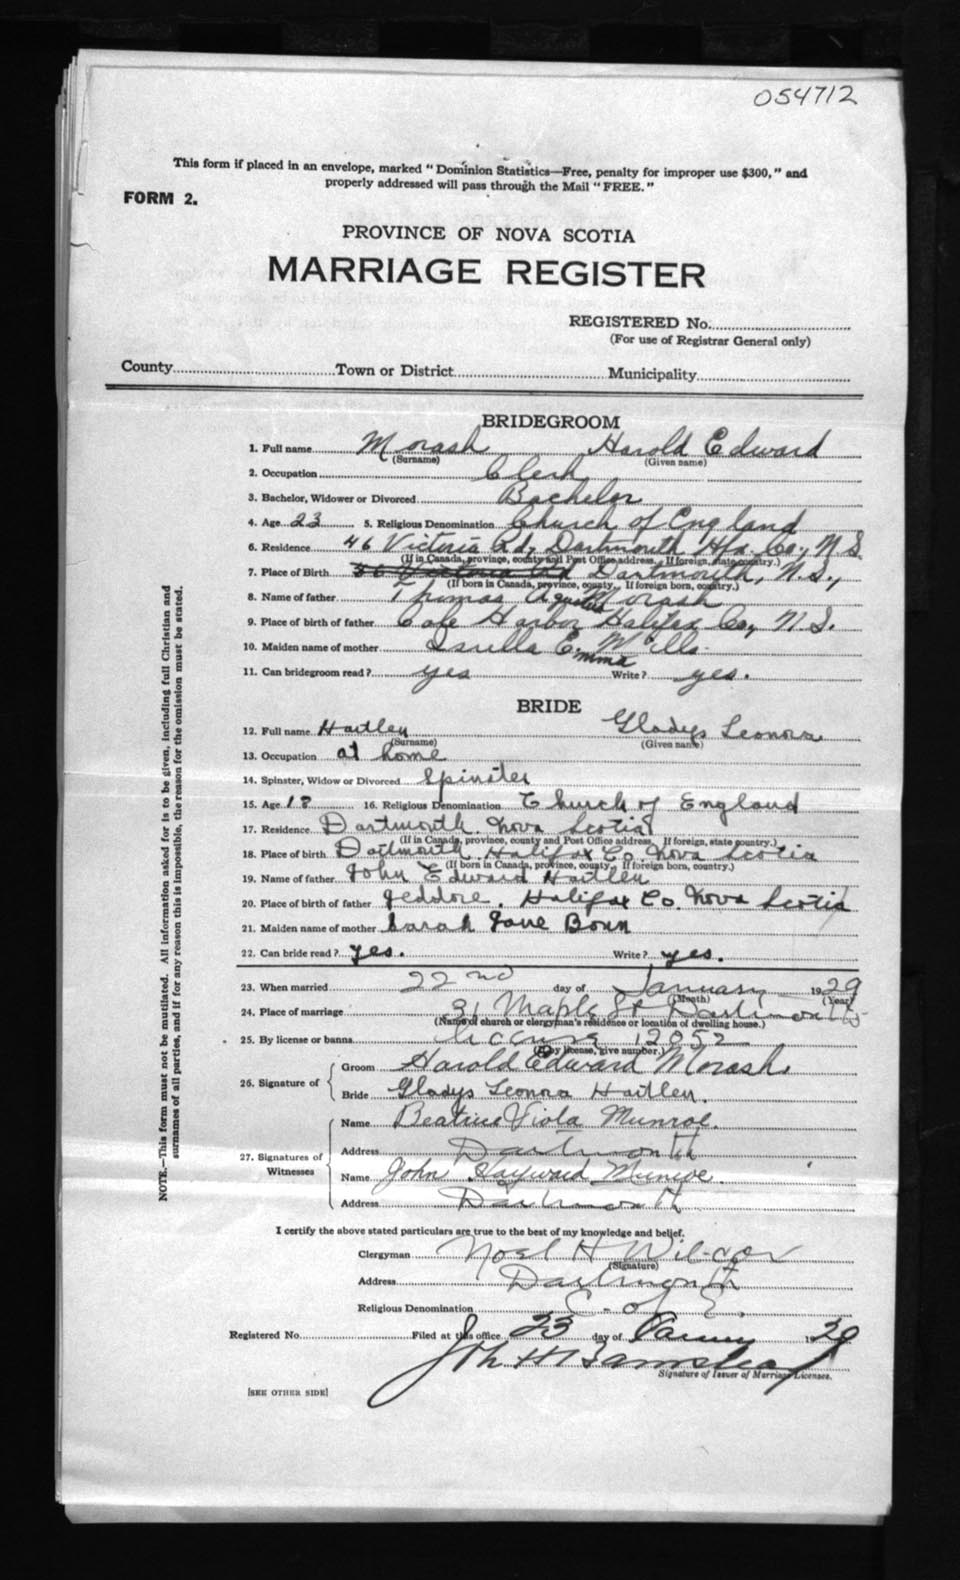 054712
This form if placed in an envelope, marked "Dominion Statistics—Free, penalty for improper use $300," and
properly addressed will pass through the Mail "FREE."
FORM 2.
PROVINCE OF NOVA SCOTIA
MARRIAGE REGISTER
REGISTERED No.
(For use of Registrar General only)
County Town or District Municipality
BRIDEGROOM
1. Full name Morash Harold Edward
(Surname) (Given name)
2. Occupation Clerk
3. Bachelor, Widower or Divorced Bachelor
4. Age 23 5. Religious Denomination Church of England
6. Residence 46 Victoria Rd, Dartmouth Hfx. Co., N.S.
(If in Canada, province, county and Post Office address. If foreign, state country.)
7. Place of Birth 36 Victoria Rd Dartmouth, N.S.,
(If born in Canada, province, county. If foreign born, country.)
8. Name of father Thomas Morash
9. Place of birth of father Harbor Halifax Co, N.S.
10. Maiden name of mother E. Emma Mills
11. Can bridegroom read? yes Write? yes.
BRIDE
12. Full name Hartley Gladys Leonora
(Surname) (Given name)
13. Occupation at home
14. Spinster, Widow or Divorced Spinster
15. Age 18 16. Religious Denomination Church of England
17. Residence Dartmouth. Nova Scotia
(If in Canada, province, county and Post Office address. If foreign, state country.)
18. Place of birth Dartmouth Halifax Co. Nova Scotia
(If born in Canada, province, county. If foreign born, country.)
19. Name of father John Edward Hartley
20. Place of birth of father Jeddore. Halifax Co. Nova Scotia
21. Maiden name of mother Sarah Jane Bonn
22. Can bride read? Yes. Write? yes.
23. When married 22nd day of January 1929
(Month) (Year)
24. Place of marriage 31 Maple St Dartmouth
(Name of church or clergyman's residence or location of dwelling house.)
25. By license or banns License 12852
(If by license, give number.)
26. Signature of Groom Harold Edward Morash.
Bride Gladys Leonora Hartley.
27. Signatures of Witnesses Name Beatrice Viola Munroe.
Address Dartmouth
Name John Munroe.
Address Dartmouth
I certify the above stated particulars are true to the best of my knowledge and belief.
Clergyman Noel H Wilcox
(Signature)
Address Dartmouth
Religious Denomination C. of E.
Registered No. Filed at this office 23 day of January 1929
Signature of Issuer of Marriage Licenses.
[SEE OTHER SIDE]
NOTE.—This form must not be mutilated. All information asked for is to be given, including full Christian and
surnames of all parties, and if for any reason this is impossible, the reason for the omission must be stated.